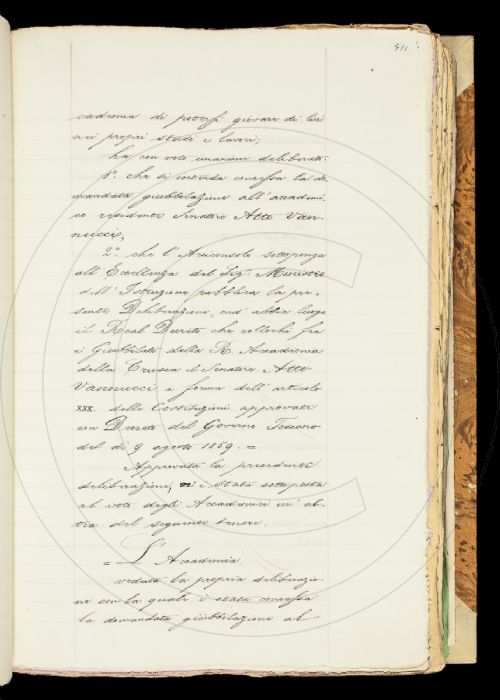 511
cademia di potersi giovare di lui
nei propri studi e lavori;
ha con voto unanime deliberato:
1.° che si intenda concessa la do-
mandata giubbilazione all'accademi-
co residente Senatore Atto Van-
nucci;
2.° che l'Arciconsolo sottoponga
all'Eccellenza del Sig.r Ministro
dell'Istruzione pubblica la pre-
sente Deliberazione, ond'abbia luogo
il Real Decreto che collochi fra
i Giubbilati della R. Accademia
della Crusca il Senatore Atto
Vannucci a forma dell'articolo
XXX delle Costituzioni approvate
con Decreto del Governo Toscano
del dì 9 agosto 1859. =
Approvata la precedente
deliberazione, è stata sottoposta
al voto degli Accademici un'al-
tra del seguente tenore.
= L'Accademia,
veduta la propria deliberazio-
ne con la quale è stata concessa
la domandata giubbilazione al